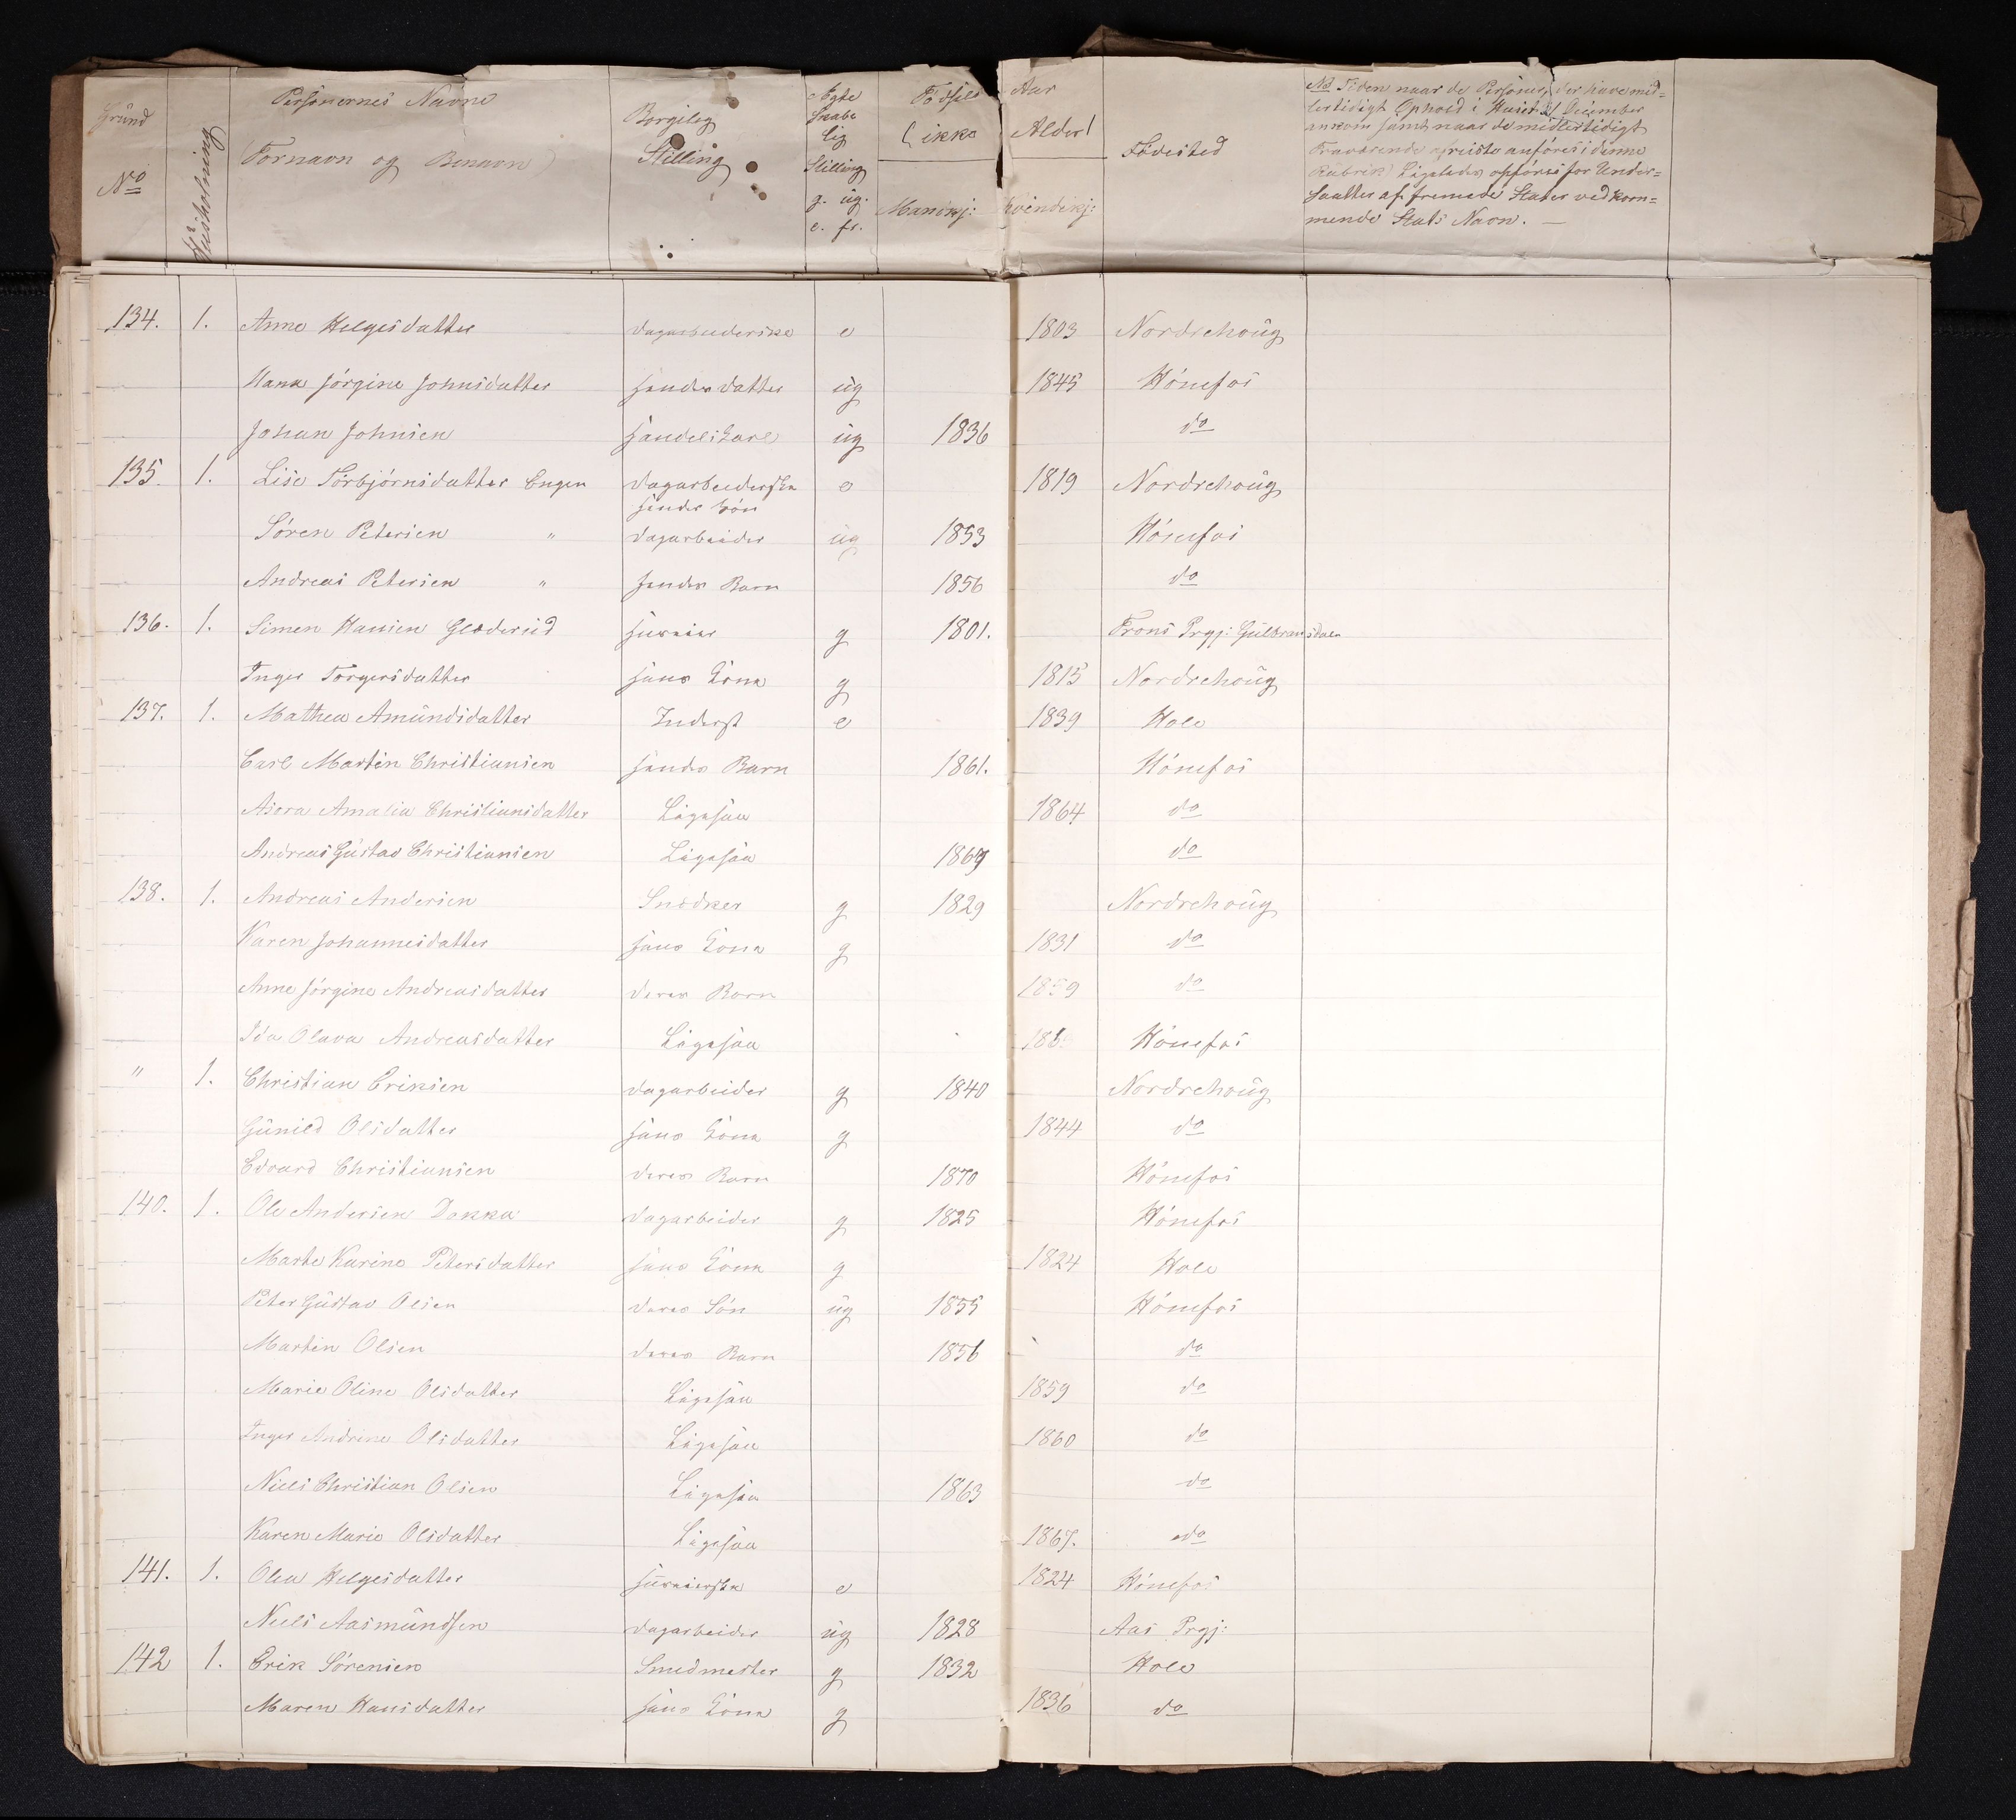 Grund No
Huusholdning
Personernes Navne
(Fornavn og Benavn)
Borgilig Stilling
Ægte Skabe lig Stilling g. ug. e. fr.
Födsels Aar
(ikke Alder)
Mandkj: kvindekj:
Fövested
NB Tiden naar de Personer, der have mid=
lertidigt Ophold i Huset 31 December
ankom samt naar de midlertidigt
Fraværende afreiste anföres i denne
Rubrik) Ligeledes opföres for Under=
saatter af fremede Stater vedkom=
mende Stats Navn. —
134. 1. Anne Helgesdatter dagarbeiderske e 1803 Nordrehoug
Hana Jörgine Johnsdatter hendes datter ug 1845 Hönefos
Johan Johnsen handelskarl ug 1836 do
135. 1. Lise Torbjörnsdatter Engen dagarbeiderske e 1819 Nordrehoug
hendes Sön
Sören Petersen " dagarbeider ug 1853 Hönefos
Andreas Petersen " hendes Barn 1856 do
136. 1. Simen Hansen Gloderud huseier g 1801. Frons Prgj: Gulbransdalen
Inger Torgersdatter hans Kona g 1815 Nordrehoug
137. 1. Mathea Amundsdatter Inderst e 1839 Hole
Carl Martin Christiansen hendes Barn 1861. Hönefos
Amalia Christiansdatter Ligesaa 1864 do
Andreas Gustav Christiansen Ligesaa 1869 do
138. 1. Andreas Andersen Snedker g 1829 Nordrehoug
Karen Johannesdatter hans Kona g 1831 do
Anne Jörgine Andreasdatter deres Barn 1859 do
Ida Olava Andreasdatter Ligesaa Hönefos
" 1. Christian Eriksen dagarbeider g 1840 Nordrehoug
Gunild Olsdatter hans Kona g 1844 do
Edvard Christiansen deres Barn 1870 Hönefos
140. 1. Ole Andersen Dokka dagarbeider g 1825 Hönefos
Marte Karine Petersdatter hans Kona g 1824 Hole
Peter Gustav Olsen deres Sön ug 1855 Hönefos
Martin Olsen deres Barn 1856 do
Marie Oline Olsdatter Ligesaa 1859 do
Inger Andrine Olsdatter Ligesaa 1860 do
Niels Christian Olsen Ligesaa 1863 do
Karen Marie Olsdatter Ligesaa 1867. do
141. 1. Olea Helgesdatter huseierske e 1824 Hönefos
Niels Aasmundsen dagarbeider ug 1828 Aas Prgj:
142 1. Erik Sörensen Smedmester g 1832 Hole
Maren Hansdatter hans Kona g 1836 do